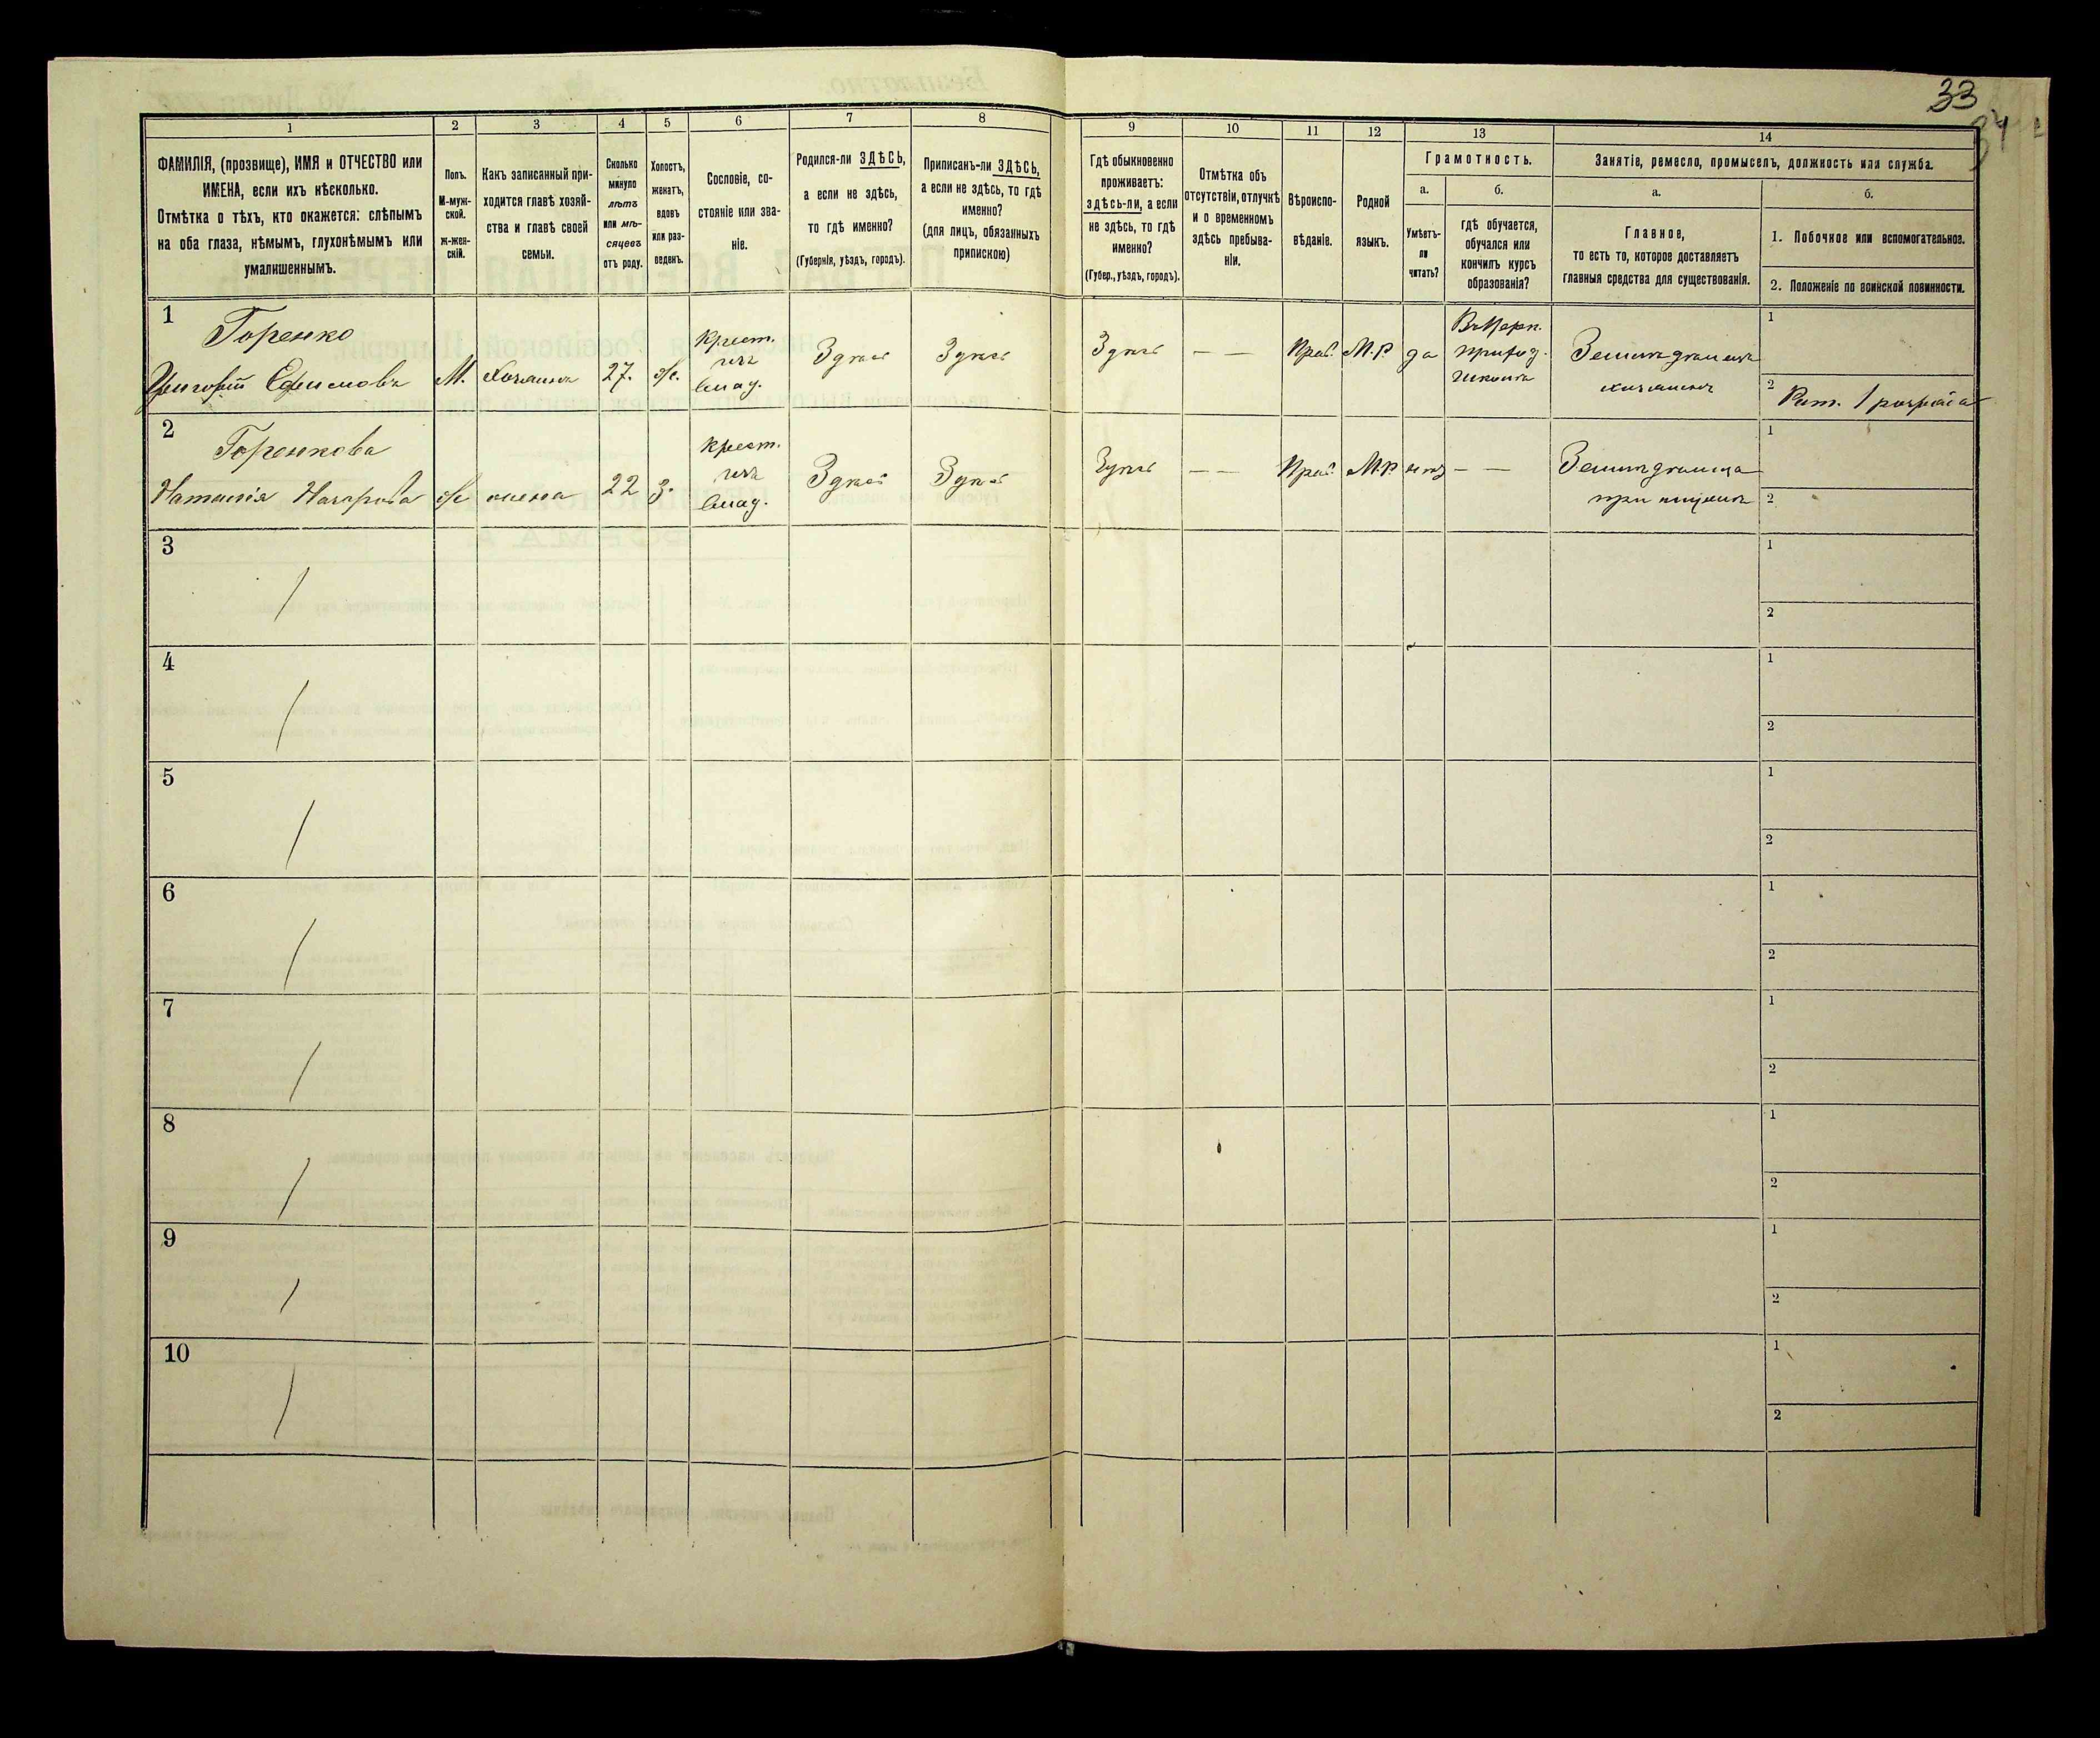 33
34
1
2
3
4
5
6
7
8
9
10
11
12
13
14
ФАМИЛІЯ, (прозвище), ИМЯ и ОТЧЕСТВО или
ИМЕНА, если ихъ нѣсколько.
Отмѣтка о тѣхъ, кто окажется: слѣпымъ
на оба глаза, нѣмымъ, глухонѣмымъ или
умалишеннымъ.
Полъ.
М-муж-
ской.
ж-жен-
скій.
Какъ записанный при-
ходится главѣ хозяй-
ства и главѣ своей
семьи.
Сколько
минуло
лѣтъ
или мѣ-
сяцевъ
отъ роду.
Холостъ,
женатъ,
вдовъ
или раз-
веденъ.
Сословіе, со-
стояніе или зва-
ніе.
Родился-ли ЗДѢСЬ,
а если не здѣсь,
то гдѣ именно?
(Губернія, уѣздъ, городъ).
Приписанъ-ли ЗДѢСЬ,
а если не здѣсь, то гдѣ
именно?
(для лицъ, обязанныхъ
припискою)
Гдѣ обыкновенно
проживаетъ:
здѣсь-ли, а если
не здѣсь, то гдѣ
именно?
(Губер., уѣздъ, городъ).
Отмѣтка объ
отсутствіи, отлучкѣ
и о временномъ
здѣсь пребыва-
ніи.
Вѣроиспо-
вѣданіе.
Родной
языкъ.
Грамотность.
а.
Умѣетъ-
ли
читать?
б.
гдѣ обучается,
обучался или
кончилъ курсъ
образованія?
Занятіе, ремесло, промыселъ, должность или служба.
а.
Главное,
то есть то, которое доставляетъ
главныя средства для существованія.
б.
1. Побочное или вспомогательное.
2. Положеніе по воинской повинности.
1
Горенко
Григорій Ефимовъ
М.
Хозяинъ
27.
ж.
крест.
изъ
влад.
Здѣсь
Здѣсь
Здѣсь
— —
Прав.
М.Р
да
приход.
Земледѣлецъ
хозяинъ
1
2
Рат. 1 разряда
2
Горенкова
Наталія Назарова
ж
жена
22
з.
крест.
изъ
влад.
Здѣсь
Здѣсь
Здѣсь
— —
Прав.
М.Р.
нѣтъ
— —
при мужѣ
1
2
3
1
2
4
1
2
5
1
2
6
1
2
7
1
2
8
1
2
9
1
2
10
1
2